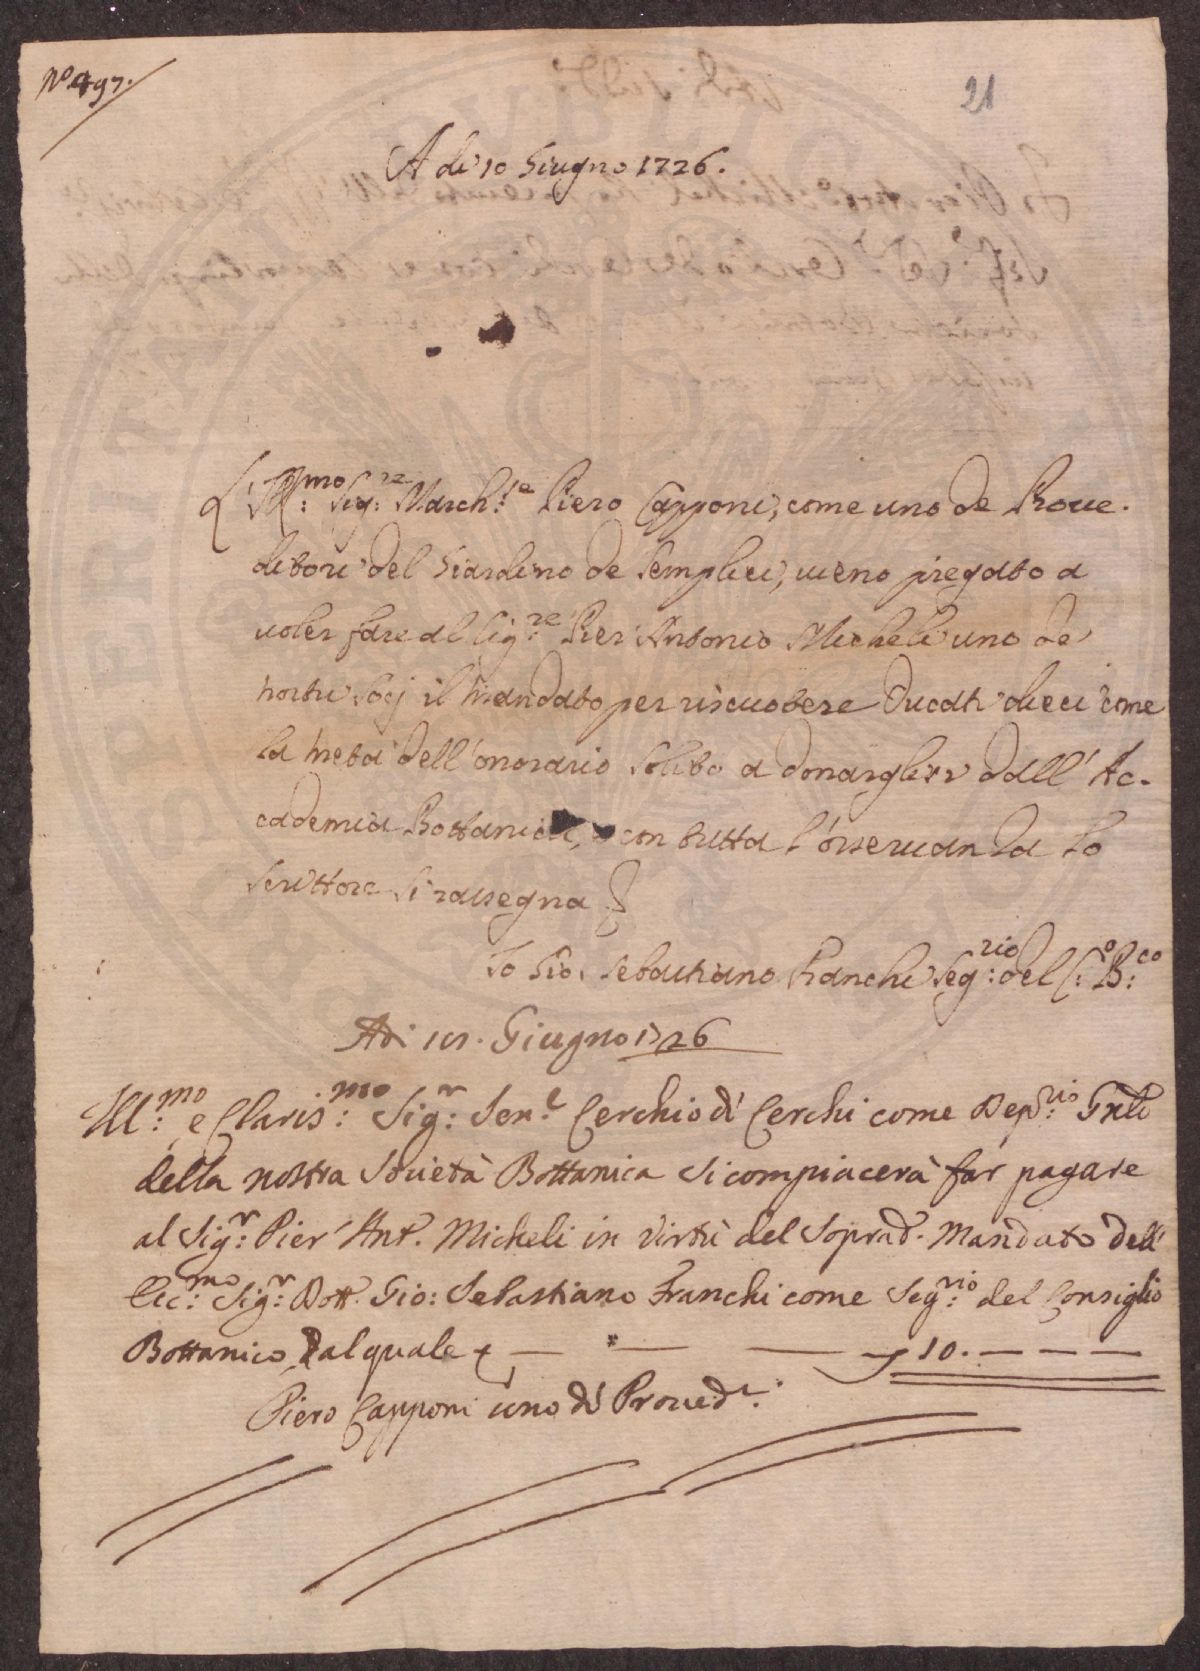 N.o 497.
21
A dì 10 Giugno 1726.
L'Ill:mo Sig:re March:se Piero Capponi, come uno de Prove-
ditori del Giardino de Semplici, vieno pregato a
voler fare al Sig:re Pier Antonio Micheli uno de
nostri Socj il mandato per riscuotere Ducati dieci come
la metà dell'onorario solito a donarglisi dall'Ac-
cademia Bottanica, e con tutta l'osservanza lo
scrittore si rassegna
Io Gio: Sebastiano Franchi Seg:rio del C:o B:co
Adi Giugno 1726
Ill:mo e Claris:mo Sig:r Sen:e Cerchio di Cerchi come Dep:rio Gnle
della nostra Società Bottanica si compiacerà far pagare
al Sig:r Pier Ant. Micheli in virtù del Soprad. Mandato dell'
Ecc:mo Sig:r Dott. Gio: Sebastiano Franchi come Seg:rio del Consiglio
Bottanico, Dal quale 10. — — —
Piero Capponi uno di Proved:r